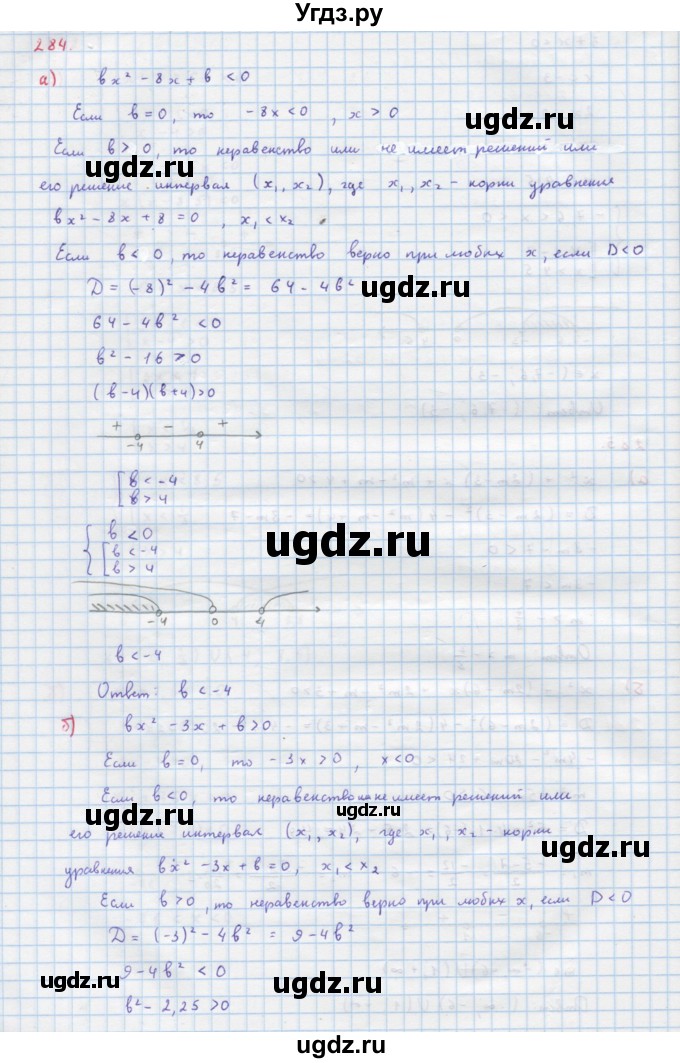 Угдз.ру
284.
а) bx² - 8x + b < 0
Если b = 0, то -8x < 0, x > 0
Если b > 0, то неравенство или не имеет решений или
его решение интервал (x₁, x₂), где x₁, x₂ - корни уравнения
bx² - 8x + 8 = 0, x₁ < x₂
Если b < 0, то неравенство верно при любых x, если D < 0
D = (-8)² - 4b² = 64 - 4b²
64 - 4b² < 0
b² - 16 > 0
(b-4)(b+4) > 0
+ - +
-4 4
[ b < -4
b > 4
{ b < 0
[ b < -4
b > 4
-4 0 4
b < -4
Ответ: b < -4
б) bx² - 3x + b > 0
Если b = 0, то -3x > 0, x < 0
Если b < 0, то неравенство не имеет решений или
его решение интервал (x₁, x₂), где x₁, x₂ - корни
уравнения bx² - 3x + b = 0, x₁ < x₂
Если b > 0, то неравенство верно при любых x, если D < 0
D = (-3)² - 4b² = 9 - 4b²
9 - 4b² < 0
b² - 2,25 > 0
ugdz.ru
ugdz.ru
ugdz.ru
ugdz.ru
ugdz.ru
ugdz.ru
ugdz.ru
ugdz.ru
ugdz.ru
ugdz.ru